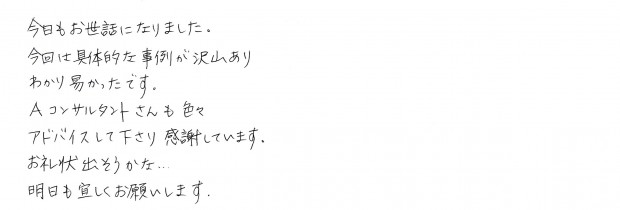 今日もお世話になりました。
今回は具体的な事例が沢山あり
わかり易かったです.
Aコンサルタントさんも色々
アドバイスして下さり感謝しています.
お礼状出そうかな...
明日も宜しくお願いします.